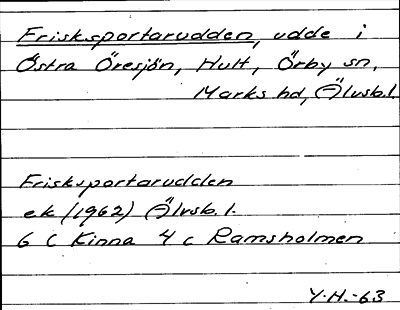 Frisksportarudden, udde i
Östra Öresjön, Hult, Örby sn,
Marks hd, Älvsb.l.
Frisksportarudden
ek (1962) Älvsb. l.
6 C Kinna 4 c Ramsholmen
Y.H.-63